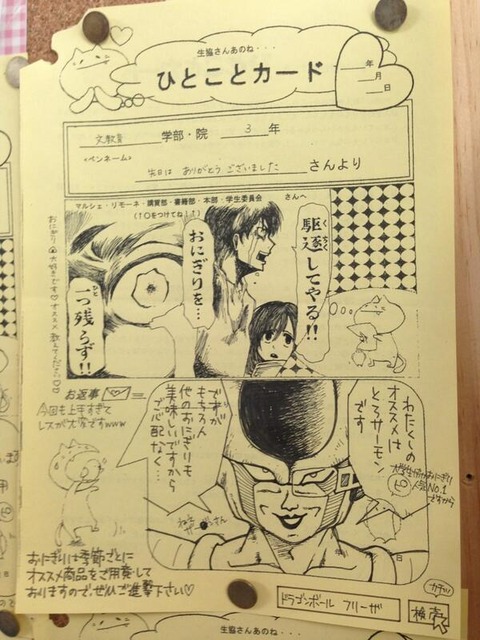 生協さんあのね・・・
ひとことカード
年
月
日
文教育 学部・院 3 年
<ペンネーム>
先日は ありがとう ございました さんより
マルシェ・リモーネ・購買部・書籍部・本部・学生委員会 さんへ
(1〇をつけてね!)
駆逐してやる!!
くちく
おにぎりを…
一つ残らず!!
ひと
お返事
今回も上手すぎて
レスが大変ですwww
わたくしの
オススメは
とろサーモン
です
大学生協のおにぎり
人気NO.1
ですから
ですが
もちろん
他のおにぎりも
美味しいですから
ご心配なく…
おにぎりは季節ごとに
オススメ商品をご用意して
おりますので、ぜひご進撃下さい♡
カチッ
ドラゴンボール フリーザ
検索
生協さんあのね・・・